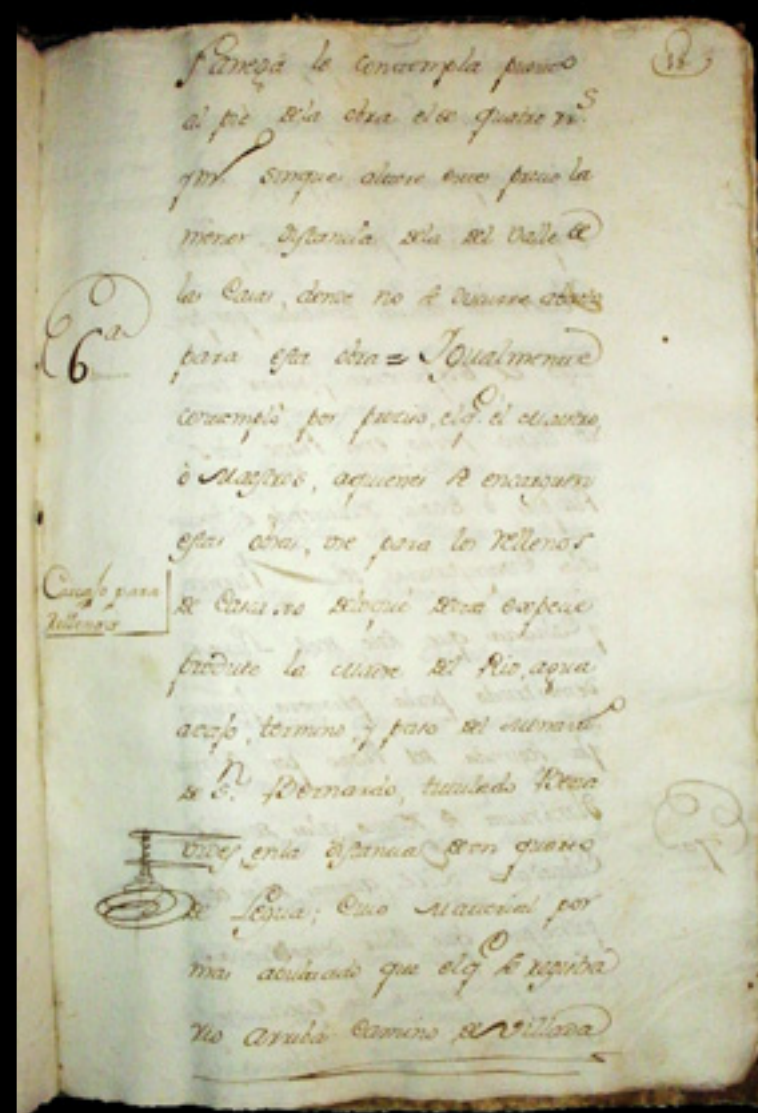 fanega le contempla preciso
al pie dela obra el de quatro rr.s
y m.o sinque altere este precio la
menor distancia dela del Valle de
las Casas, donde no se discurre
para esta obra = Igualmente
contemplo por preciso, el q.e el Maestro,
ò Maestros, aquienes se encarguen
estas obras, use para los Rellenos
de Cascaxo deloque desta especie
produce la Madre del Rio, agua
avajo, termino, y paso del Monast.o
de S.n Bernardo, titulado Bena
vides, enla distancia de un quarto
de Legua; Cuio Material por
mas abultado que el q.e se registra
rio arriba Camino de Villada
6.a
Cascajo para
Rellenos